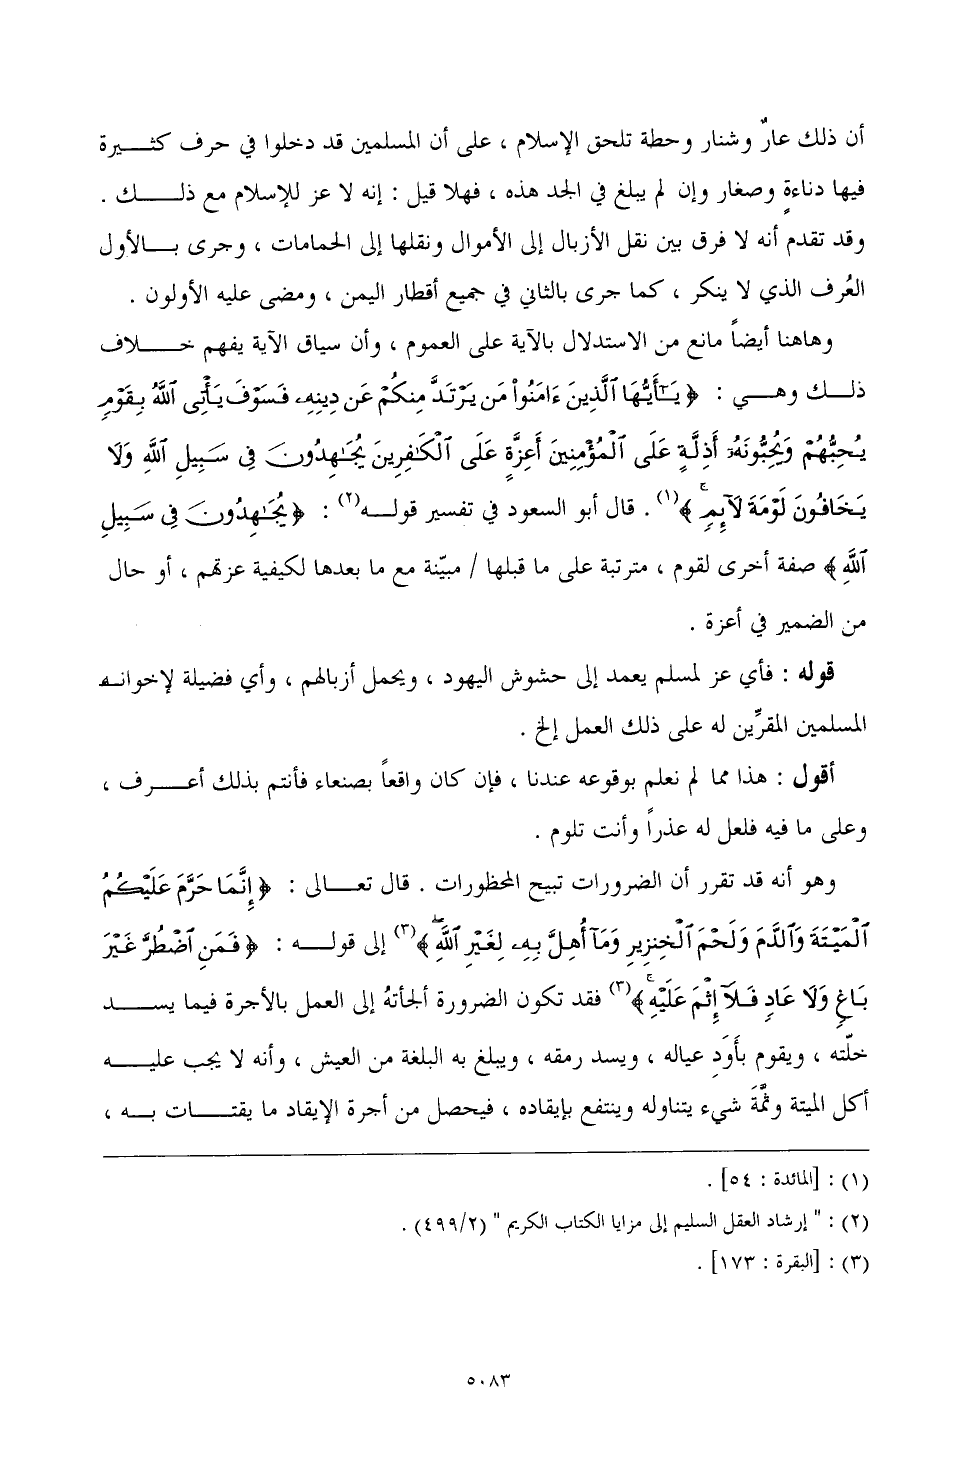 أن ذلك عارٌ وشنار وحطة تلحق الإسلام ، على أن المسلمين قد دخلوا في حرف كثـــيرة
فيها دناءةٍ وصغار وإن لم يبلغ في الحد هذه ، فهلا قيل : إنه لا عز للإسلام مع ذلـــك .
وقد تقدم أنه لا فرق بين نقل الأزبال إلى الأموال ونقلها إلى الحمامات ، وجرى بـــالأول
العُرف الذي لا ينكر ، كما جرى بالثاني في جميع أقطار اليمن ، ومضى عليه الأولون .
وهاهنا أيضاً مانع من الاستدلال بالآية على العموم ، وأن سياق الآية يفهم خـــلاف
ذلــك وهــي : ﴿ يَٰٓأَيُّهَا ٱلَّذِينَ ءَامَنُواْ مَن يَرْتَدَّ مِنكُمْ عَن دِينِهِۦ فَسَوْفَ يَأْتِى ٱللَّهُ بِقَوْمٍ
يُحِبُّهُمْ وَيُحِبُّونَهُۥٓ أَذِلَّةٍ عَلَى ٱلْمُؤْمِنِينَ أَعِزَّةٍ عَلَى ٱلْكَٰفِرِينَ يُجَٰهِدُونَ فِى سَبِيلِ ٱللَّهِ وَلَا
يَخَافُونَ لَوْمَةَ لَآئِمٍ ۚ ﴾(١) . قال أبو السعود في تفسير قولــه(٢) : ﴿ يُجَٰهِدُونَ فِى سَبِيلِ
ٱللَّهِ ﴾ صفة أخرى لقوم ، مترتبة على ما قبلها / مبيّنة مع ما بعدها لكيفية عزتهم ، أو حال
من الضمير في أعزة .
قوله : فأي عز لمسلم يعمد إلى حشوش اليهود ، ويحمل أزبالهم ، وأي فضيلة لإخوانـه
المسلمين المقرِّين له على ذلك العمل إلخ .
أقول : هذا مما لم نعلم بوقوعه عندنا ، فإن كان واقعاً بصنعاء فأنتم بذلك أعـــرف ،
وعلى ما فيه فلعل له عذراً وأنت تلوم .
وهو أنه قد تقرر أن الضرورات تبيح المحظورات . قال تعـــالى : ﴿ إِنَّمَا حَرَّمَ عَلَيْكُمُ
ٱلْمَيْتَةَ وَٱلدَّمَ وَلَحْمَ ٱلْخِنزِيرِ وَمَآ أُهِلَّ بِهِۦ لِغَيْرِ ٱللَّهِ ۖ ﴾(٣) إلى قولـــه : ﴿ فَمَنِ ٱضْطُرَّ غَيْرَ
بَاغٍ وَلَا عَادٍ فَلَآ إِثْمَ عَلَيْهِ ۚ ﴾(٣) فقد تكون الضرورة ألجأتهُ إلى العمل بالأجرة فيما يســـد
خلّته ، ويقوم بأَوَدِ عياله ، ويسد رمقه ، ويبلغ به البلغة من العيش ، وأنه لا يجب عليـــه
أكل الميتة وثَمَّةَ شيء يتناوله وينتفع بإيقاده ، فيحصل من أجرة الإيقاد ما يقتـــات بـــه ،
(١) : [المائدة : ٥٤] .
(٢) : " إرشاد العقل السليم إلى مزايا الكتاب الكريم " (٤٩٩/٢) .
(٣) : [البقرة : ١٧٣] .
٥٠٨٣